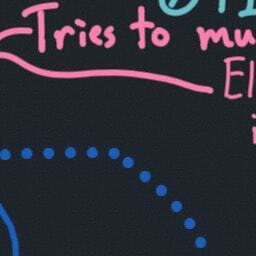 Tries to mu
El